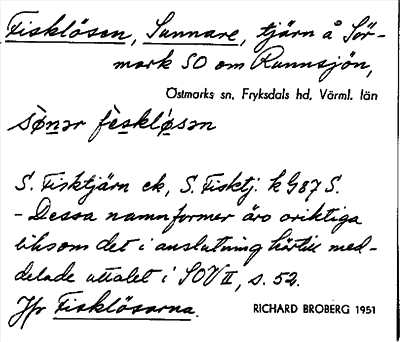 Fisklösen, Sunnare, tjärn å Sör-
mark SO om Runnsjön,
Östmarks sn, Fryksdals hd, Värml. län
sònər fèskløsən
S. Fisktjärn ek, S. Fisktj. k G87 S.
- Dessa namnformer äro oriktiga
liksom det i anslutning härtill med-
delade uttalet i SOV II, s. 52.
Jfr Fisklösarna.
RICHARD BROBERG 1951